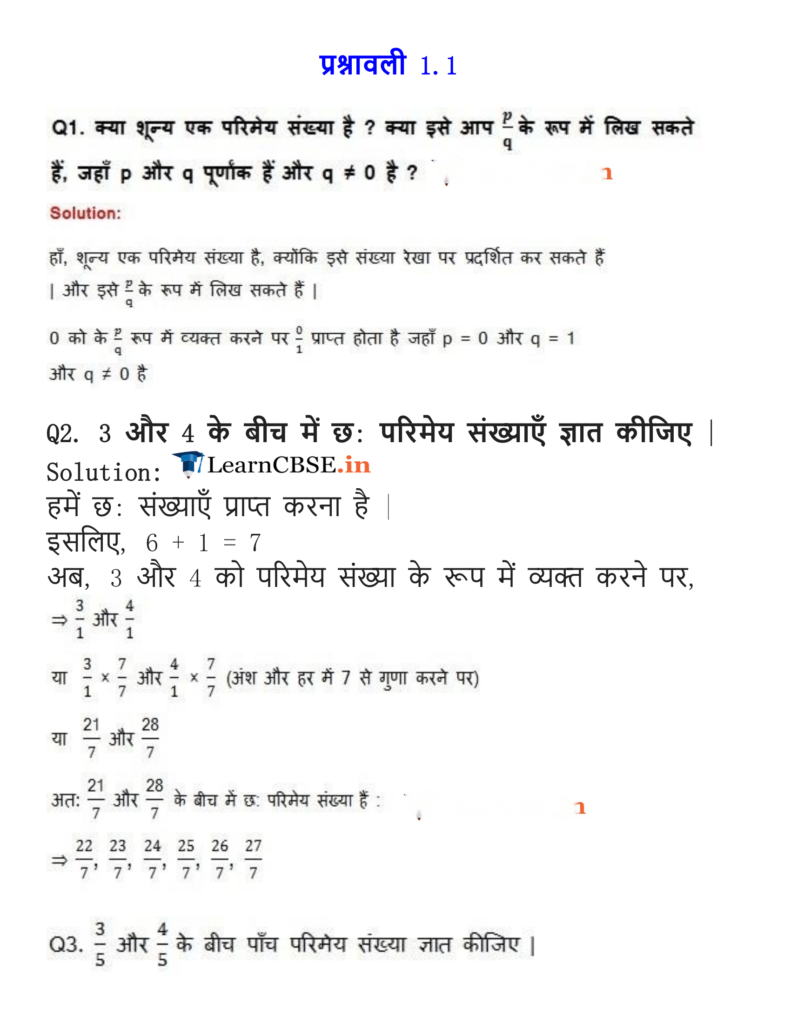 प्रश्नावली 1.1
Q1. क्या शून्य एक परिमेय संख्या है ? क्या इसे आप p/q के रूप में लिख सकते
हैं, जहाँ p और q पूर्णांक हैं और q ≠ 0 है ?
Solution:
हाँ, शून्य एक परिमेय संख्या है, क्योंकि इसे संख्या रेखा पर प्रदर्शित कर सकते हैं
| और इसे p/q के रूप में लिख सकते हैं |
0 को के p/q रूप में व्यक्त करने पर 0/1 प्राप्त होता है जहाँ p = 0 और q = 1
और q ≠ 0 है
Q2. 3 और 4 के बीच में छ: परिमेय संख्याएँ ज्ञात कीजिए |
Solution: LearnCBSE.in
हमें छ: संख्याएँ प्राप्त करना है |
इसलिए, 6 + 1 = 7
अब, 3 और 4 को परिमेय संख्या के रूप में व्यक्त करने पर,
⇒ 3/1 और 4/1
या 3/1 × 7/7 और 4/1 × 7/7 (अंश और हर में 7 से गुणा करने पर)
या 21/7 और 28/7
अत: 21/7 और 28/7 के बीच में छ: परिमेय संख्या हैं :
⇒ 22/7, 23/7, 24/7, 25/7, 26/7, 27/7
Q3. 3/5 और 4/5 के बीच पाँच परिमेय संख्या ज्ञात कीजिए |